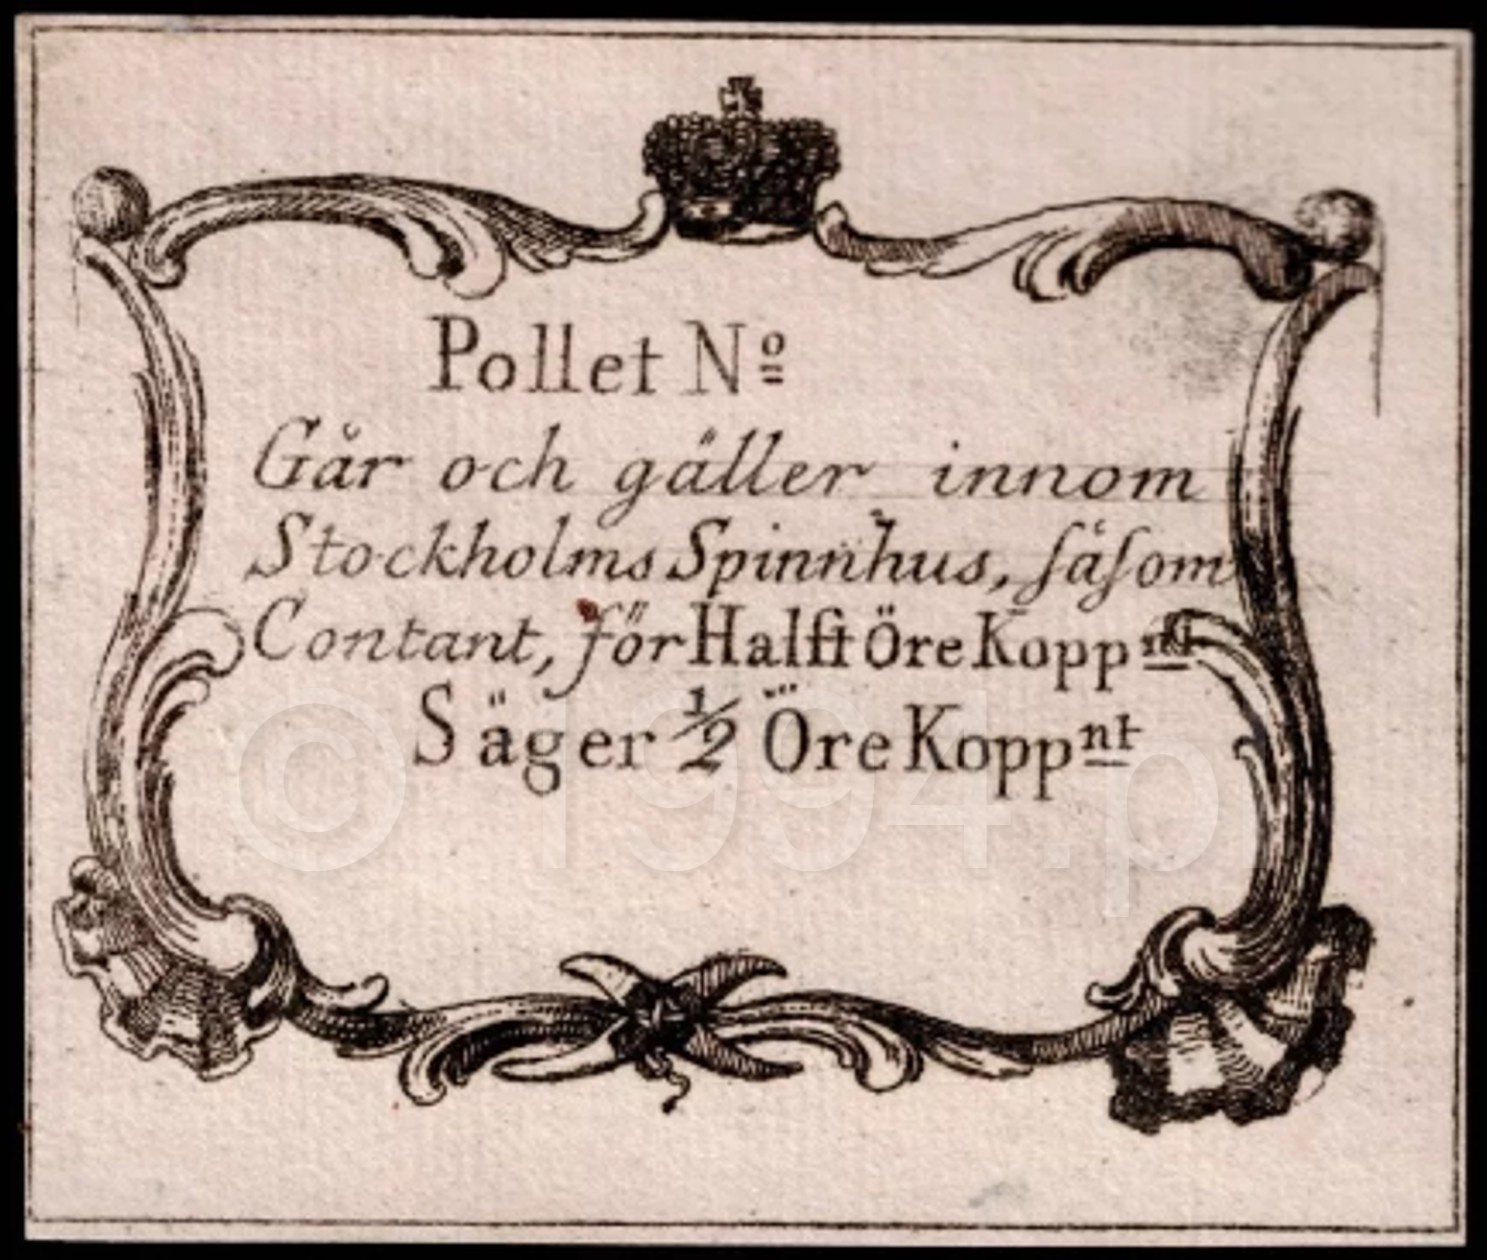 Pollet Nº
Går och gäller innom
Stockholms Spinnhus, ſåſom
Contant, för Halft Öre Kopp nt
Säger ½ Öre Kopp nt
© 1994.p